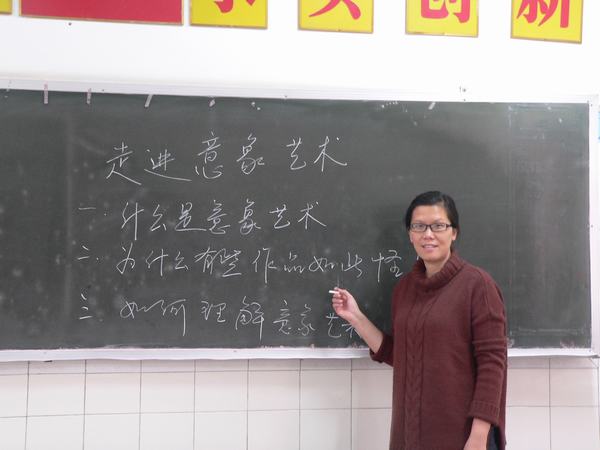 求实创新
走进意象艺术
一.什么是意象艺术
二.为什么有些作品如此怪
三.如何理解意象艺术